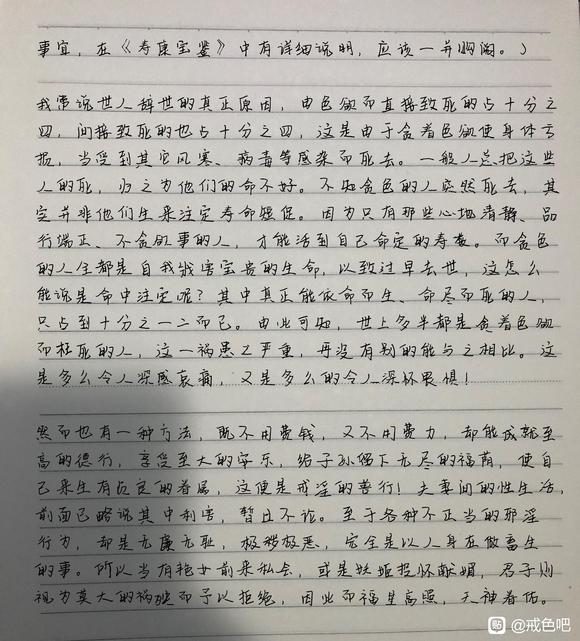 事宜，在《寿康宝鉴》中有详细说明，应该一并购阅。）
我常说世人辞世的真正原因，由色欲而直接致死的占十分之
四，间接致死的也占十分之四，这是由于贪着色欲使身体亏
损，当受到其它风寒、病毒等感染而死去。一般人总把这些
人的死，归之为他们的命不好。不知贪色的人突然死去，其
实并非他们生来注定寿命短促。因为只有那些心地清静、品
行端正、不贪欲事的人，才能活到自己命定的寿数。而贪色
的人全都是自我戕害宝贵的生命，以致过早去世，这怎么
能说是命中注定呢？其中真正能依命而生、命尽而死的人，
只占到十分之一二而已。由此可知，世上多半都是贪着色欲
而枉死的人，这一祸患之严重，再没有别的能与之相比。这
是多么令人深感哀痛，又是多么的令人深怀畏惧！
然而也有一种方法，既不用费钱，又不用费力，却能成就至
高的德行，享受至大的安乐，给子孙留下无尽的福荫，使自
己来生有贞良的眷属，这便是戒淫的善行！夫妻间的性生活，
前面已略说其中利害，暂且不论。至于各种不正当的邪淫
行为，却是无廉无耻，极秽极恶，完全是以人身在做畜生
的事。所以当有艳女前来私会，或是妖姬投怀献媚，君子则
视为莫大的祸殃而予以拒绝，因此而福星高照，天神眷佑。
贴 @戒色吧